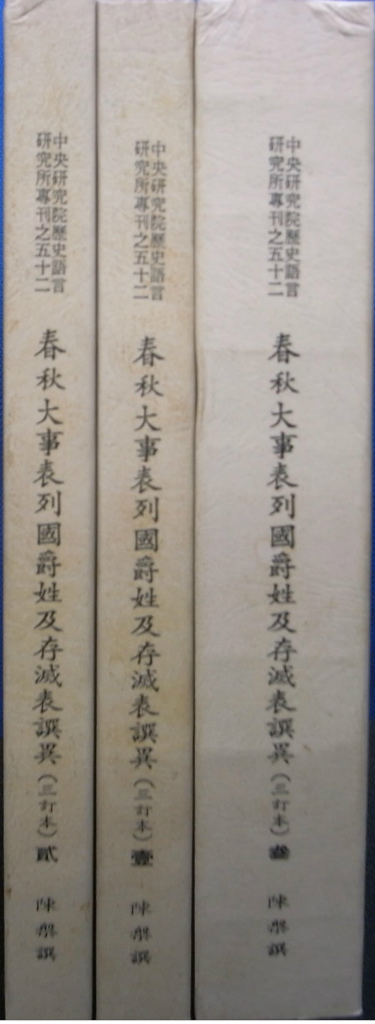 中央研究院歷史語言
研究所專刊之五十二
春秋大事表列國爵姓及存滅表譔異(三訂本)貳 陳槃譔
中央研究院歷史語言
研究所專刊之五十二
春秋大事表列國爵姓及存滅表譔異(三訂本)壹 陳槃譔
中央研究院歷史語言
研究所專刊之五十二
春秋大事表列國爵姓及存滅表譔異(三訂本)叁 陳槃譔